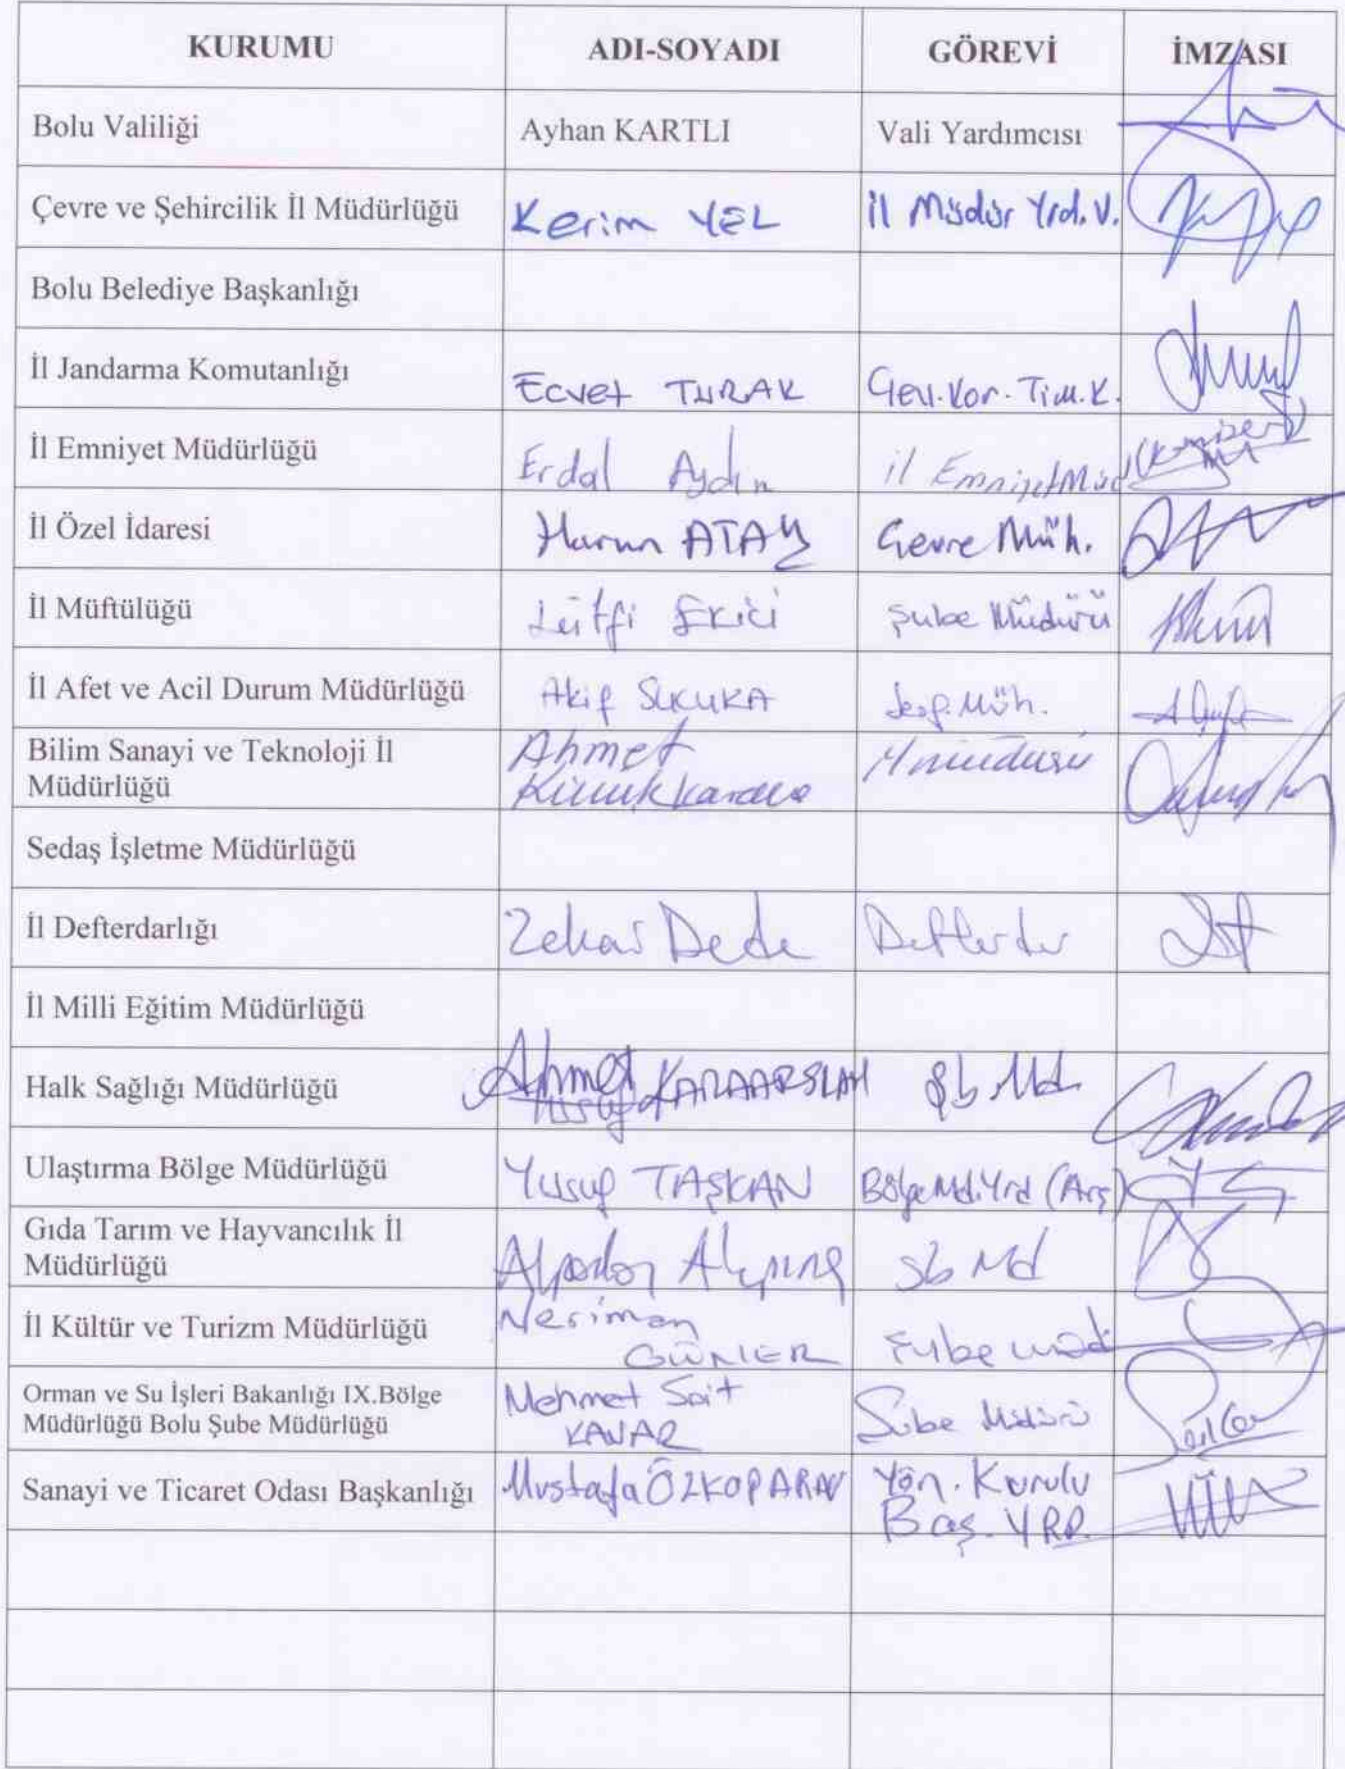 KURUMU ADI-SOYADI GÖREVİ İMZASI
Bolu Valiliği Ayhan KARTLI Vali Yardımcısı
Çevre ve Şehircilik İl Müdürlüğü Kerim YEL İl Müdür Yrd. V.
Bolu Belediye Başkanlığı
İl Jandarma Komutanlığı Ecvet TURAK Çev. Kor. Tim. K.
İl Emniyet Müdürlüğü Erdal Aydın il Emniyet Müd
İl Özel İdaresi Harun ATAY Çevre Müh.
İl Müftülüğü Lütfi Ekici Şube Müdürü
İl Afet ve Acil Durum Müdürlüğü Akif SUCUKA Jeof. Müh.
Bilim Sanayi ve Teknoloji İl Ahmet
Müdürlüğü
Sedaş İşletme Müdürlüğü
İl Defterdarlığı Zekai Dede Defterdar
İl Milli Eğitim Müdürlüğü
Halk Sağlığı Müdürlüğü Ahmet KARAARSLAN Şb Md
Ulaştırma Bölge Müdürlüğü Yusuf TAŞKAN Bölge Md. Yrd (Arş)
Gıda Tarım ve Hayvancılık İl
Müdürlüğü Şb Md
İl Kültür ve Turizm Müdürlüğü Neriman
GÜNLER Şube Müd
Orman ve Su İşleri Bakanlığı IX.Bölge Mehmet Sait
Müdürlüğü Bolu Şube Müdürlüğü KANAR Şube Müdürü
Sanayi ve Ticaret Odası Başkanlığı Mustafa ÖZKOPARAN Yön. Kurulu
Baş. YRD.